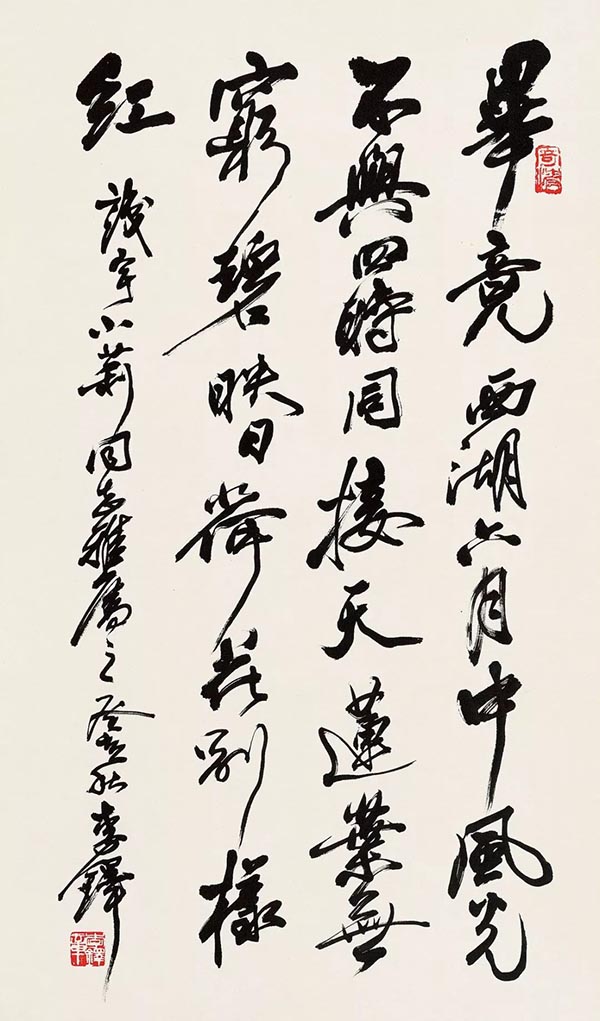 畢竟西湖六月中風光
不與四時同接天蓮葉無
窮碧映日荷花別樣
紅
宇小莉同志雅屬之 秋李鐸
李鐸